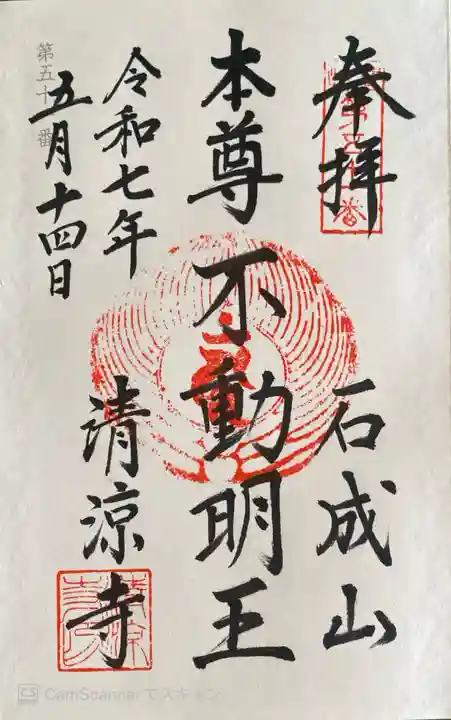 奉拝
石成山
本尊 不動明王
令和七年
五月十四日
清涼寺
CS CamScannerでスキャン